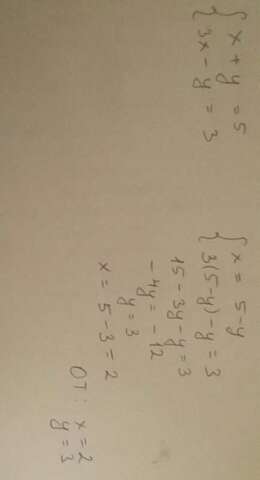 x + y = 5
3x - y = 3
x = 5-y
3(5-y)-y = 3
15-3y-y=3
-4y=-12
y=3
x = 5-3=2
ОТ: x=2
y=3